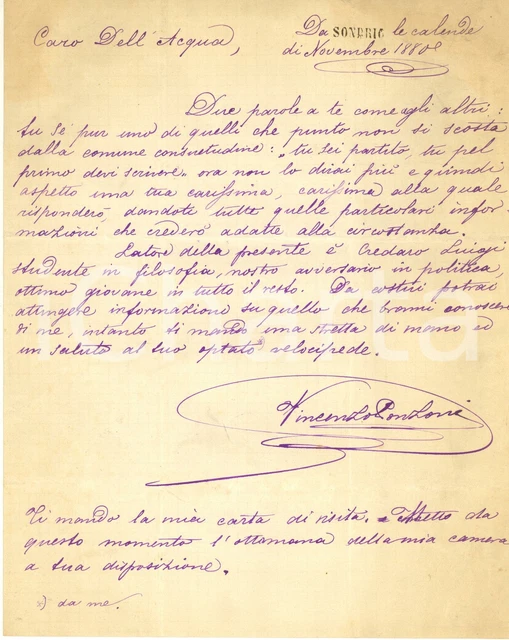 Caro Dell'Acqua,
Da SONDRIO le calende
di Novembre 1880
Due parole a te come agli altri:
tu sé pur uno di quelli che punto non si scosta
dalla comune consuetudine: "tu sei partito, tu pel
primo devi scrivere" ora non lo dirai più e quindi
aspetto una tua carissima, carissima alla quale
risponderò, dandoti tutte quelle particolari infor-
mazioni che crederò adatte alla circostanza.
Latore della presente è Credaro Luigi
studente in filosofia, nostro avversario in politica,
ottimo giovane in tutto il resto. Da costui potrai
attingere informazione su quello che brami conoscere
di me, intanto ti mando una stretta di mano ed
un saluto al tuo optato velocifede.
Vincenzo Ponzoni
Ti mando la mia carta di visita. Metto da
questo momento l'ottomana della mia camera
a tua disposizione.
da me.